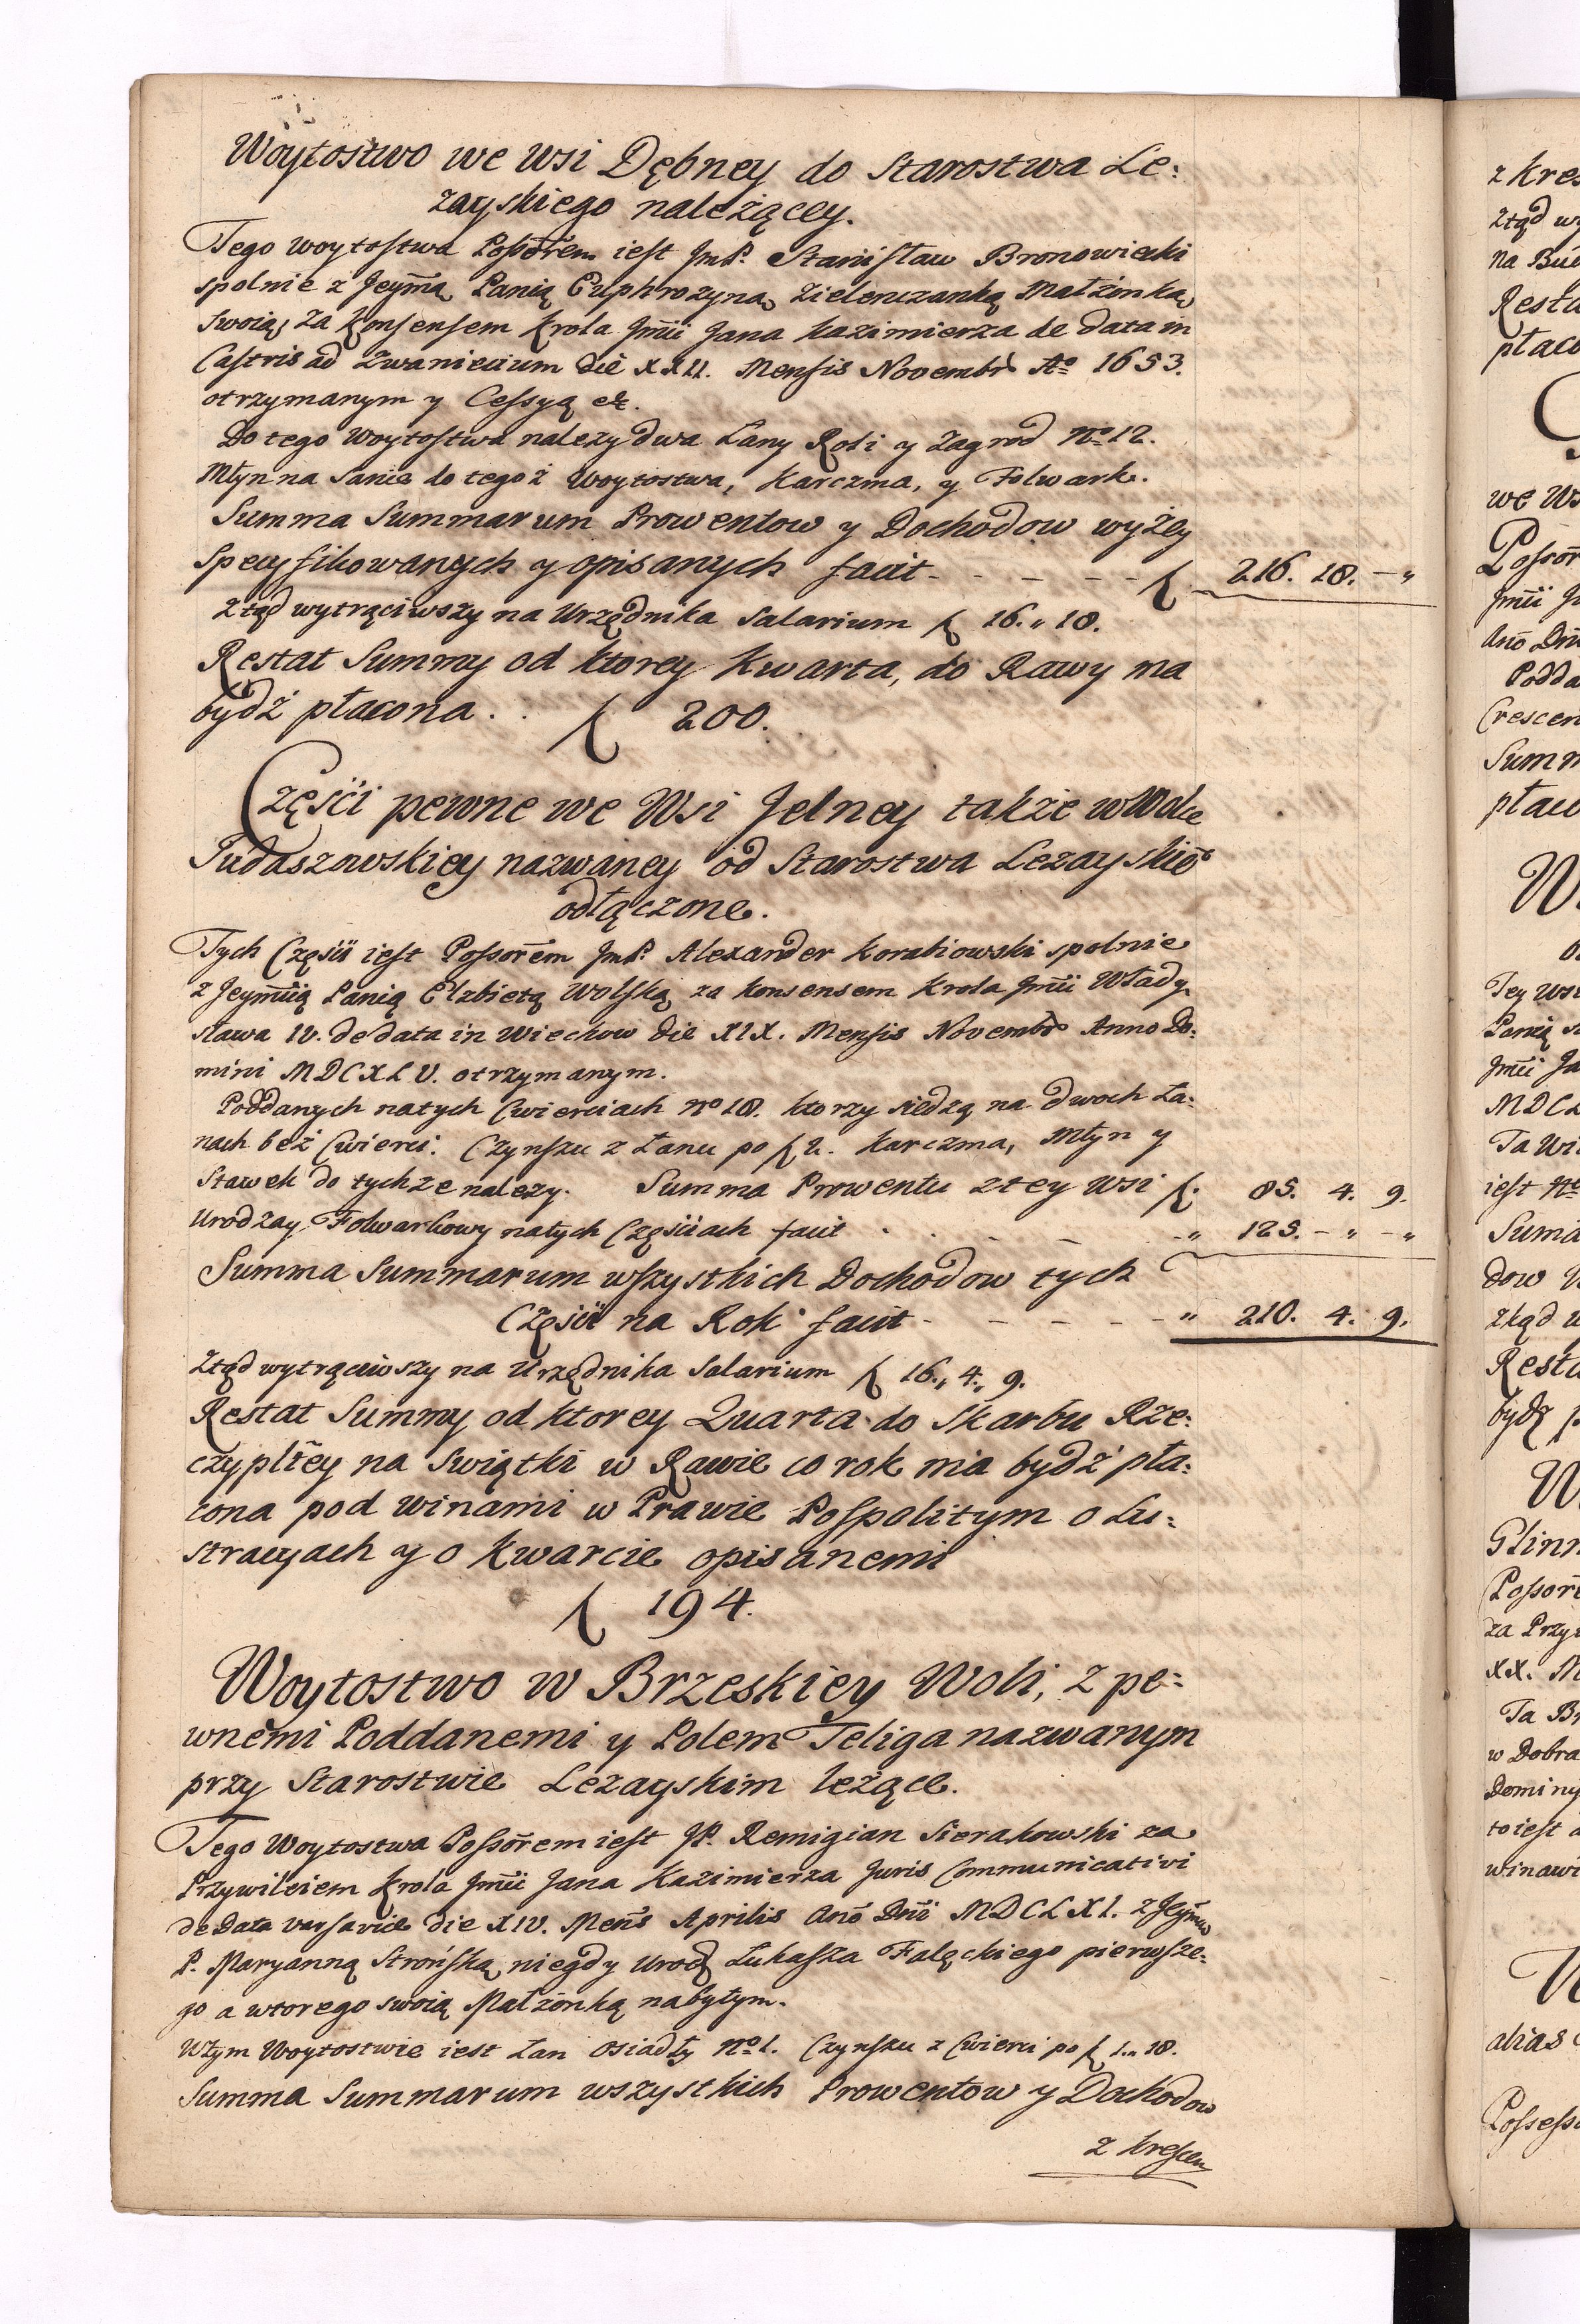 Woytostwo we Wsi Dębney do Starostwa Le:
żayskiego należącey.
Tego Woytostwa Possorem iest JmP. Stanisław Bronowiecki
spolnie z Jeymą Panią Euphrozyną Zielenczanką Małżonką
swoią, za Konsensem Krola Jmci Jana Kazimierza de data in
Castris ad Zwaniecium die XXII. Mensis Novembr Ao 1653.
otrzymanym y Cessyą etc.
Do tego Woytostwa nalezy dwa Łany Roli y Zagrod No 12.
Młyn na Sanie do tegoż Woytostwa, Karczma, y Folwark.
Summa Summarum Prowentow y Dochodow wyżey
specyfikowanych y opisanych facit - - - - - f 216. 18. - "
Ztąd wytrąciwszy na Urzędnika Salarium f 16. " 18.
Restat Summy od ktorey Kwarta, do Rawy ma
bydź płacona . . f 200.
Części pewne we Wsi Jelney także w Wolce
Judaszowskiey nazwaney od Starostwa Lezayskieo
odłączone.
Tych Części iest Possorem JmP. Alexander Korabiowski spolnie
z Jeymcią Panią Elzbietą Wolską za konsensem Krola Jmci Włady
sława IV. de data in Wiechow die XIX. Mensis Novembr Anno Do:
mini MDCXLV. otrzymanym.
Poddanych na tych Cwierciach No 18. ktorzy siedzą na dwoch Ła:
nach beż Cwierci. Czynszu z Łanu po f 2. Karczma, Młyn y
Stawek do tychze nalezy. Summa Prowentu z tey Wsi f. 85. 4. 9.
Urodzay Folwarkowy na tych Częściach facit . . . - - " 125. - " - "
Summa Summarum wszystkich Dochodow tych
Części na Rok facit - - - - - - " 210. 4. 9.
Ztąd wytrąciwszy na Urzędnika Salarium f 16. " 4. " 9.
Restat Summy od ktorey Quarta do Skarbu Rze:
czypltey na Swiątki w Rawie co rok ma bydź pła:
cona pod winami w Prawie Pospolitym o Lu:
stracyach y o Kwarcie opisanemi
f 194.
Woytostwo w Brzeskiey Woli, z pe:
wnemi Poddanemi y Polem Teliga nazwanym
przy Starostwie Lezayskim leżące.
Tego Woytostwa Possorem iest JP. Remigian Sierakowski za
Przywileiem Krola Jmci Jana Kazimierza Juris Communicativi
de Data Varsaviae die XIV. Mens Aprilis Ano Dni MDCLXI. z Jeymcią
P. Maryanną Strońską niegdy Urodz Łukasza Fałęckiego pierwsze:
go a wtorego swoią Małżonką nabytym.
W tym Woytostwie iest Łan osiadły No 1. Czynszu z Cwierci po f 1. " 18.
Summa Summarum wszystkich Prowentow y Dochodow
z Krescen